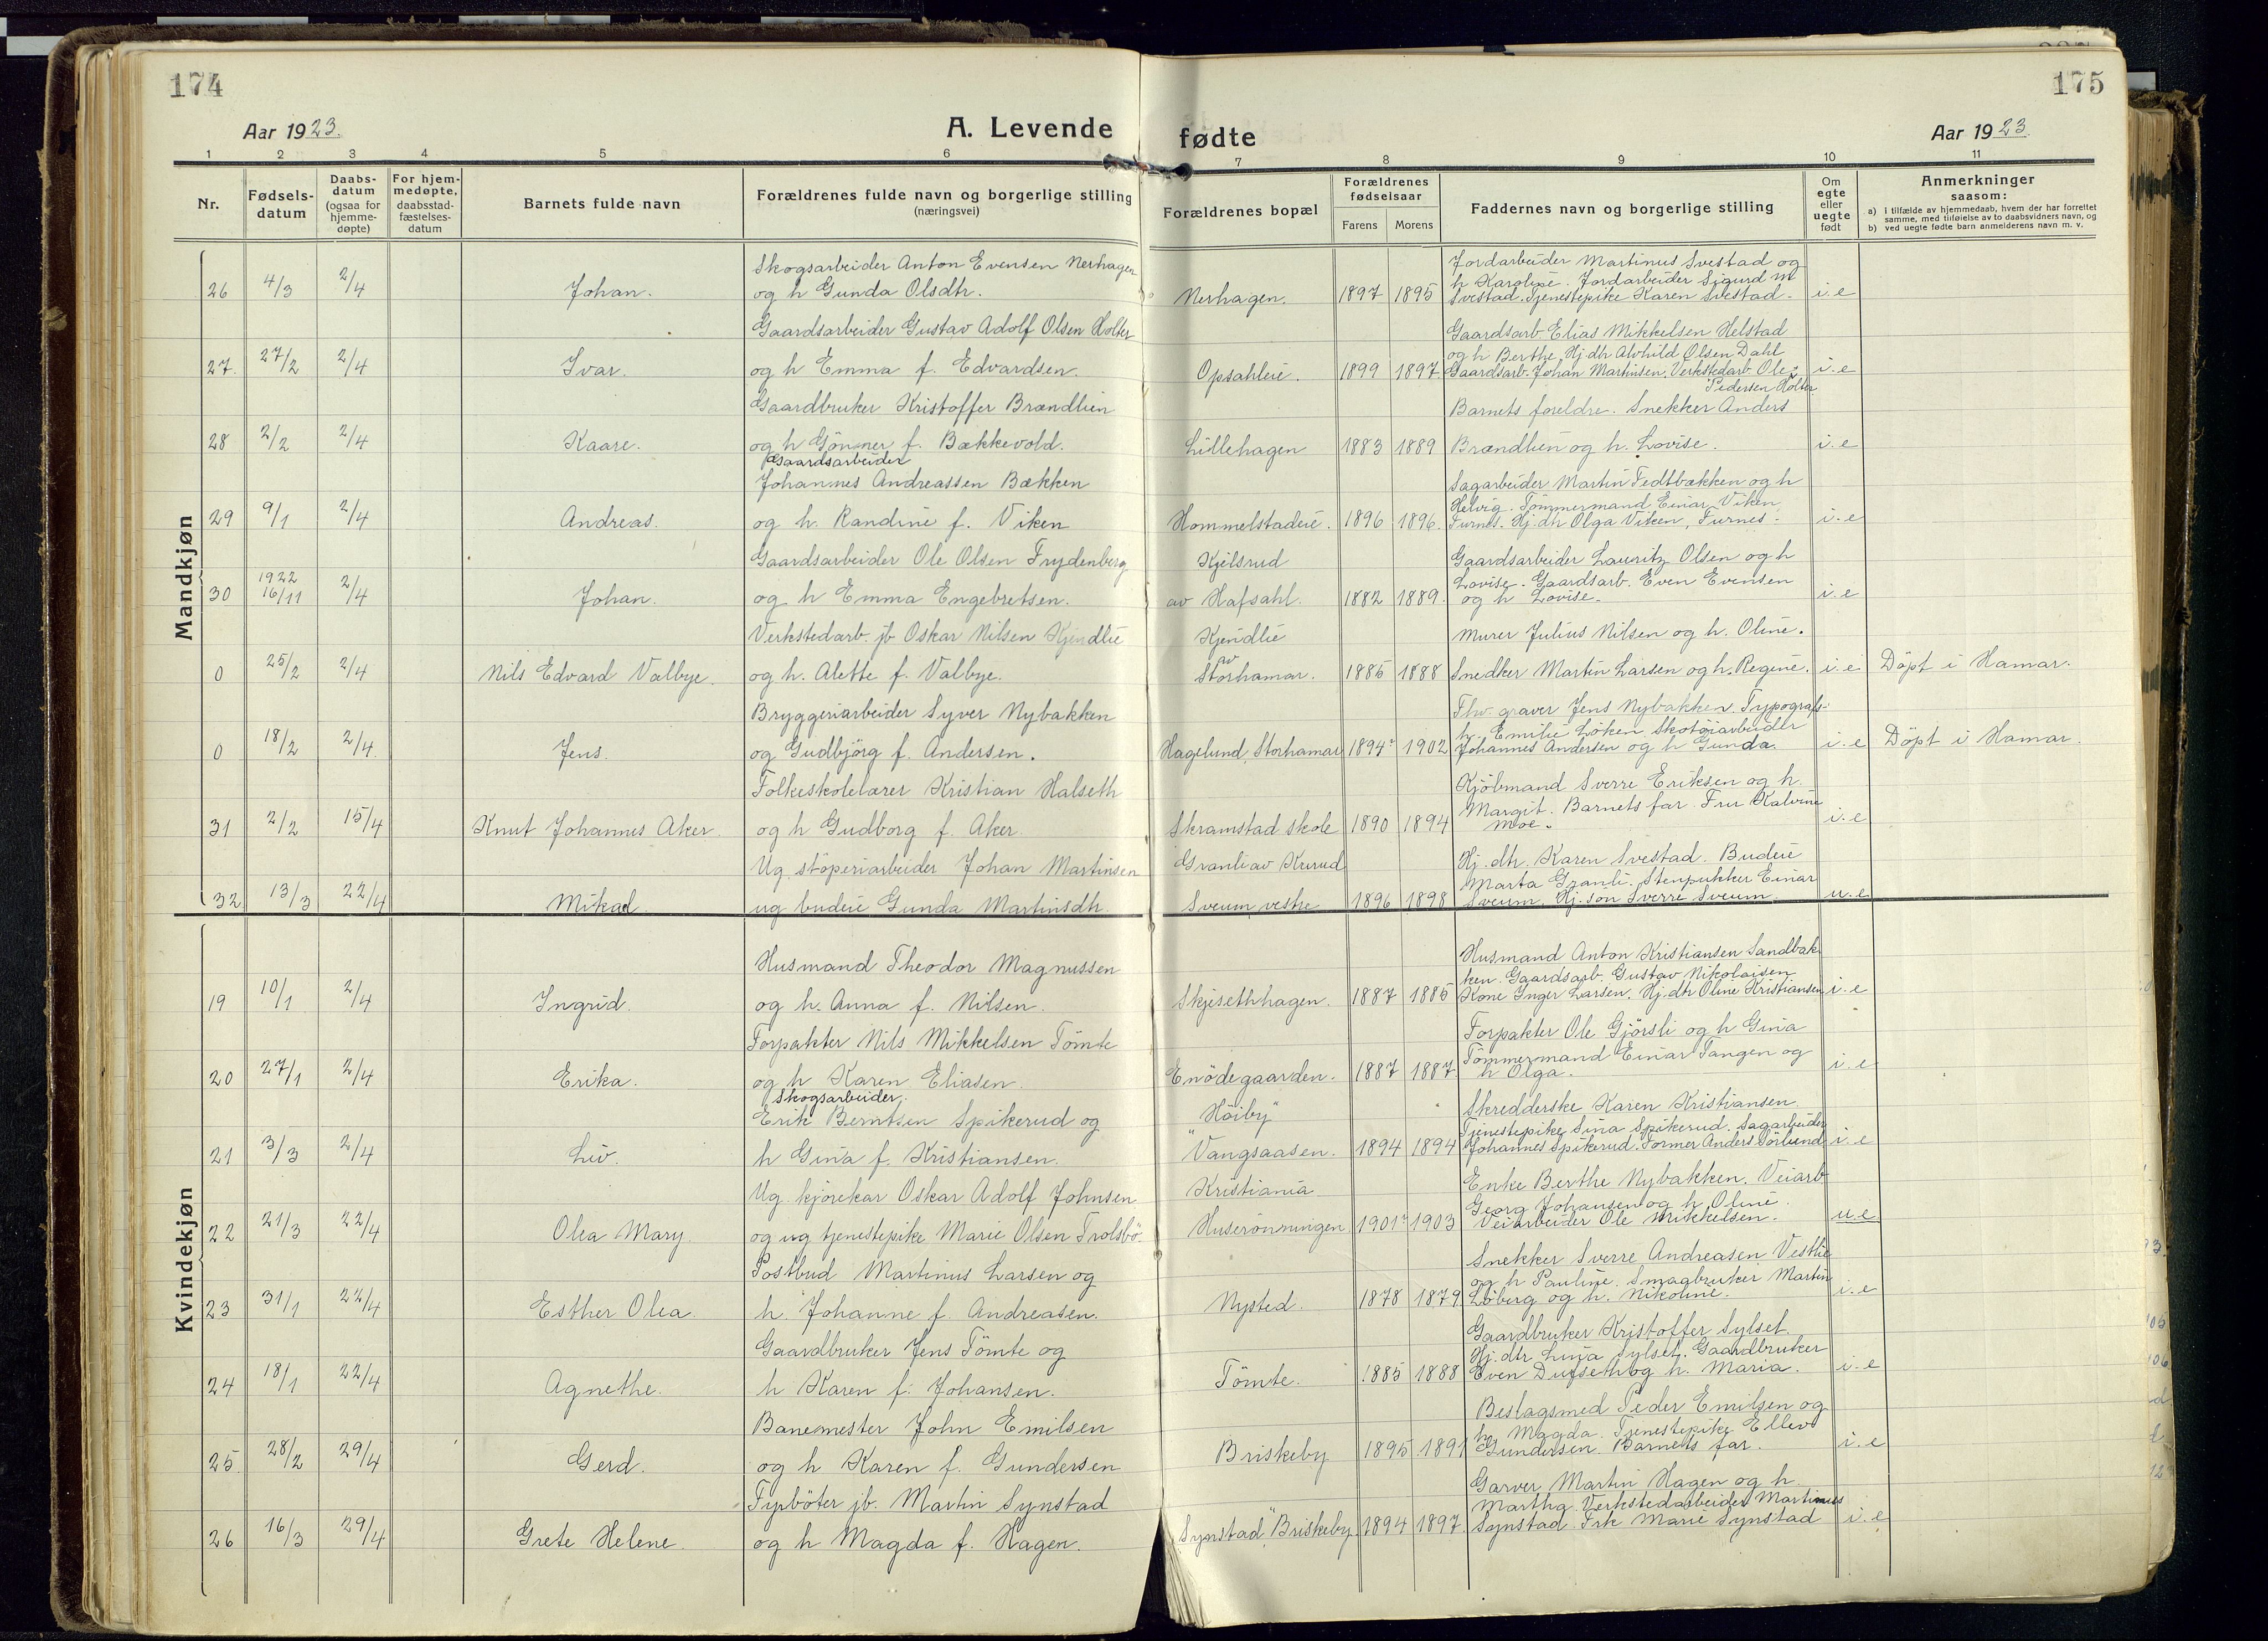 174
175
Aar 1923.
A. Levende
fødte
Aar 1923
1 2 3 4 5 6 7 8 9 10 11
Nr.
Fødsels-
datum
Daabs-
datum
(ogsaa for
hjemme-
døpte)
For hjem-
medøpte,
daabsstad-
fæstelses-
datum
Barnets fulde navn
Forældrenes fulde navn og borgerlige stilling
(næringsvei)
Forældrenes bopæl
Forældrenes
fødselsaar
Farens Morens
Faddernes navn og borgerlige stilling
Om
egte
eller
uegte
født
Anmerkninger
saasom:
a) I tilfælde av hjemmedaab, hvem der har forrettet
samme, med tilføielse av to daabsvidners navn, og
b) ved uegte fødte barn anmelderens navn m. v.
Mandkjøn
Skogsarbeider Anton Evensen Nerhagen
Jordarbeider Martinus Svestad og
h Karoline. Jordarbeider Sigurd M
26 4/3 2/4 Johan. og h Gunda Olsdtr. Nerhagen. 1897 1895 Svestad. Tjenestepike Karen Svestad. i.e
Gaardsarbeider Gustav Adolf Olsen Holter
Gaardsarb Elias Mikkelsen Helstad
og h Berthe. Hj.dtr Alvhild Olsen Dahl
27. 27/2 2/4 Ivar. og h Emma f. Edvardsen Opsahleie. 1899 1897. Gaardsarb. Johan Martinsen. Verkstedarb Ole i.e
Pedersen Holter
Gaardbruker Kristoffer Brændlien
Barnets foreldre. Snekker Anders
28 2/2 2/4 Kaare. og h Gönner f. Bækkevold. Lillehagen 1883 1889 Brændlien og h. Lovise. i.e
Gaardsarbeider
Johannes Andreassen Bækken
Sagarbeider Martin Fedtbakken og h
Helvig. Tömmermand Einar Viken
29 9/1 2/4 Andreas. og h. Randine f. Viken Hommelstadeie. 1896 1896. Furnes. Hj.dtr Olga Viken, Furnes. i.e
Gaardsarbeider Ole Olsen Frydenberg Kjelsrud
Gaardsarbeider Lauritz Olsen og h
Lovise. Gaardsarb. Even Evensen
30 1922 16/11 2/4 Johan. og h Emma Engebretsen. av Hafsahl. 1882 1889. og h Lovise. i.e
Verkstedarb. jb Oskar Nilsen Kjendlie Kjendlie
Murer Julius Nilsen og h. Oline.
0 25/2 2/4 Nils Edvard Valbye. og h. Alette f. Valbye. av Storhamar. 1885 1888 Snedker Martin Larsen og h. Regine. i.e Döpt i Hamar.
Bryggeriarbeider Syver Nybakken
graver Jens Nybakken. Typografs-
h. Emilie Löken. Skotöiarbeider
0 18/2 2/4 Jens. og Gudbjörg f. Andersen. Hagelund, Storhamar 1894 1902 Johannes Andersen og h Gunda. i.e Döpt i Hamar.
Folkeskolelærer Kristian Halseth
Kjöbmand Sverre Eriksen og h.
Margit. Barnets far. Fru Kalvine
31 2/2 15/4 Knut Johannes Aker. og h Gudborg f. Aker. Skramstad skole 1890 1894 Moe. i.e
Ug. stöperiarbeider Johan Martinsen Granli av Krurud
Hj.dtr. Karen Svestad. Budeie
Marta Granli. Stenpukker Einar
32 13/3 22/4 Mikael ug budeie Gunda Martinsdtr. Sveum vestre 1896 1898 Sveum. Hj.sön Sverre Sveum. u.e
Kvindekjøn
Husmand Theodor Magnussen
Husmand Anton Kristiansen Sandbak-
ken. Gaardsarb. Gustav Nikolaisen
19 10/1 2/4 Ingrid. og h. Anna f. Nilsen. Skjesethhagen. 1887 1885 Kone Inger Larsen. Hj.dtr Oline Kristiansen i.e
Forpakter Nils Mikkelsen Tömte
Forpakter Ole Gjörsli og h Gina
Tömmermand Einar Tangen og
20 27/1 2/4 Erika. og h Karen Eliasen. Enödegaarden. 1887 1887 h Olga. i.e
Skogsarbeider.
Erik Berntsen Spikerud og "Höiby"
Skredderske Karen Kristiansen.
Tjenestepike Sina Spikerud. Sagarbeider
21 3/3 2/4 Liv. h Gina f. Kristiansen. Vangsaasen. 1894 1894 Johannes Spikerud. Former Anders Sörlund i.e
Ug. kjörekar Oskar Adolf Johnsen Kristiania
Enke Berthe Nybakken. Veiarb
Georg Johansen og h Oline.
22 21/3 22/4 Olea Mary. og ug tjenestepike Marie Olsen Trolsbö. Huserönningen 1901 1903 Veiarbeider Ole Mikkelsen. u.e
Postbud Martinus Larsen og
Snekker Sverre Andreasen Vestlie
og h Pauline. Smaabruker Martin
23 31/1 22/4 Esther Olea. h. Johanne f. Andreasen. Nysted. 1878 1879 Löberg og h. Nikoline. i.e
Gaardbruker Jens Tömte og
Gaardbruker Kristoffer Sylset.
Hj.dtr Lina Sylset. Gaardbruker
24 18/1 22/4 Agnethe. h Karen f. Johansen. Tömte. 1885 1888 Even Dufseth og h. Maria. i.e
Banemester John Emilsen
Beslagsmed Peder Emilsen og
h. Magda. Tjenestepike Ellev
25 28/2 29/4 Gerd. og h Karen f. Gundersen Briskeby 1895 1891 Gundersen. Barnets far. i.e
Fyrböter jb. Martin Synstad
Garver Martin Hagen og h
Martha. Verkstedarbeider Martinus
26 16/3 29/4 Grete Helene. og h Magda f. Hagen. "Synstad" Briskeby. 1894 1897 Synstad. Frk Marie Synstad i.e